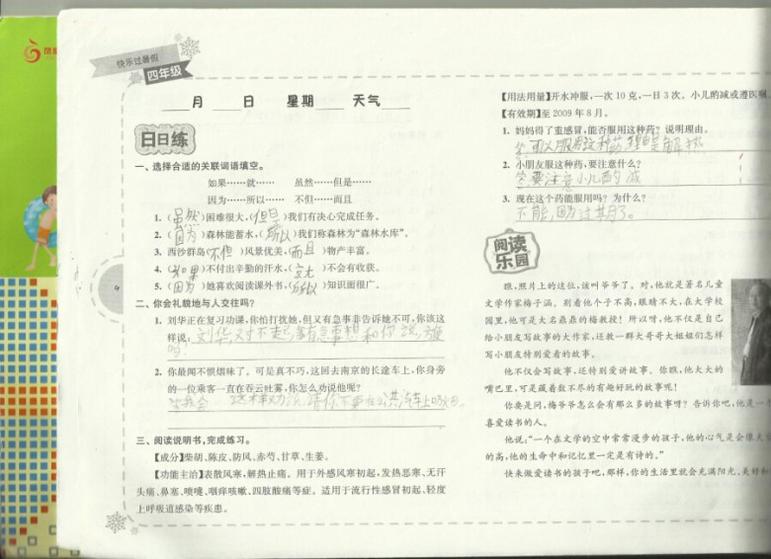 快乐过暑假
四年级
月 日 星期 天气
日日练
一、选择合适的关联词语填空。
如果……就…… 虽然……但是……
因为……所以…… 不但……而且
1.（虽然）困难很大,（但是）我们有决心完成任务。
2.（因为）森林能蓄水,（所以）我们称森林为“森林水库”。
3. 西沙群岛（不但）风景优美,（而且）物产丰富。
4.（如果）不付出辛勤的汗水,（就）不会有收获。
5.（因为）她喜欢阅读课外书,（所以）知识面很广。
二、你会礼貌地与人交往吗?
1. 刘华正在复习功课,你怕打扰她,但又有急事非告诉她不可,你该这
样说: 刘华,对不起,我有急事想和你说,
吗?
2. 你最闻不惯烟味了。可是真不巧,这回去南京的长途车上,你身旁
的一位乘客一直在吞云吐雾,你怎么劝说他呢?
答:我会 这样劝 请你不要在公共汽车上吸烟。
三、阅读说明书,完成练习。
【成分】柴胡、陈皮、防风、赤芍、甘草、生姜。
【功能主治】表散风寒,解热止痛。用于外感风寒初起,发热恶寒、无汗
头痛、鼻塞、喷嚏、咽痒咳嗽、四肢酸痛等症。适用于流行性感冒初起、轻度
上呼吸道感染等疾患。
【用法用量】开水冲服,一次 10 克,一日 3 次。小儿酌减或遵医嘱
【有效期】至 2009 年 8 月。
1. 妈妈得了重感冒,能否服用这种药? 说明理由。
答:可以服用这种药,理由是解热
2. 小朋友服这种药,要注意什么?
答:要注意小儿酌减
3. 现在这个药能服用吗? 为什么?
不能,因为过期了。
阅读
乐园
瞧,照片上的这位,该叫爷爷了。对,他就是著名儿童
文学作家梅子涵。别看他个子不高,眼睛不大,在大学校
园里,他可是大名鼎鼎的梅教授! 所以呀,他不仅是自己
给小朋友写故事的大作家,还教一群大哥哥大姐姐们怎样
写小朋友特别爱看的故事。
他不仅会写故事,还特别爱讲故事。你瞧,他大大的
嘴巴里,可是藏着数不尽的有趣好玩的故事呢!
你要是问,梅爷爷怎么会有那么多的故事呀? 告诉你吧,他是一个
喜爱读书的人。
他说,“一个在文学的空中常常漫步的孩子,他的心气是会像天
的高,他的生命中和记忆里一定是有诗的。”
快来做爱读书的孩子吧,那样,你的生活里就会充满阳光、美好和